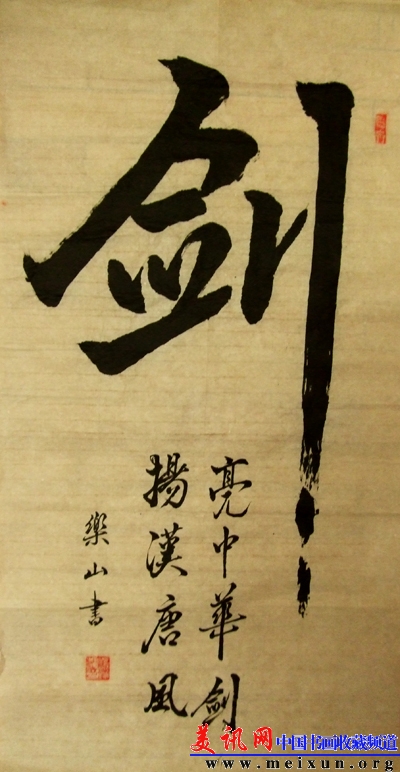 剑
亮中華劍
揚漢唐風
樂山書
美讯网中国书画收藏频道
www.meixun.org